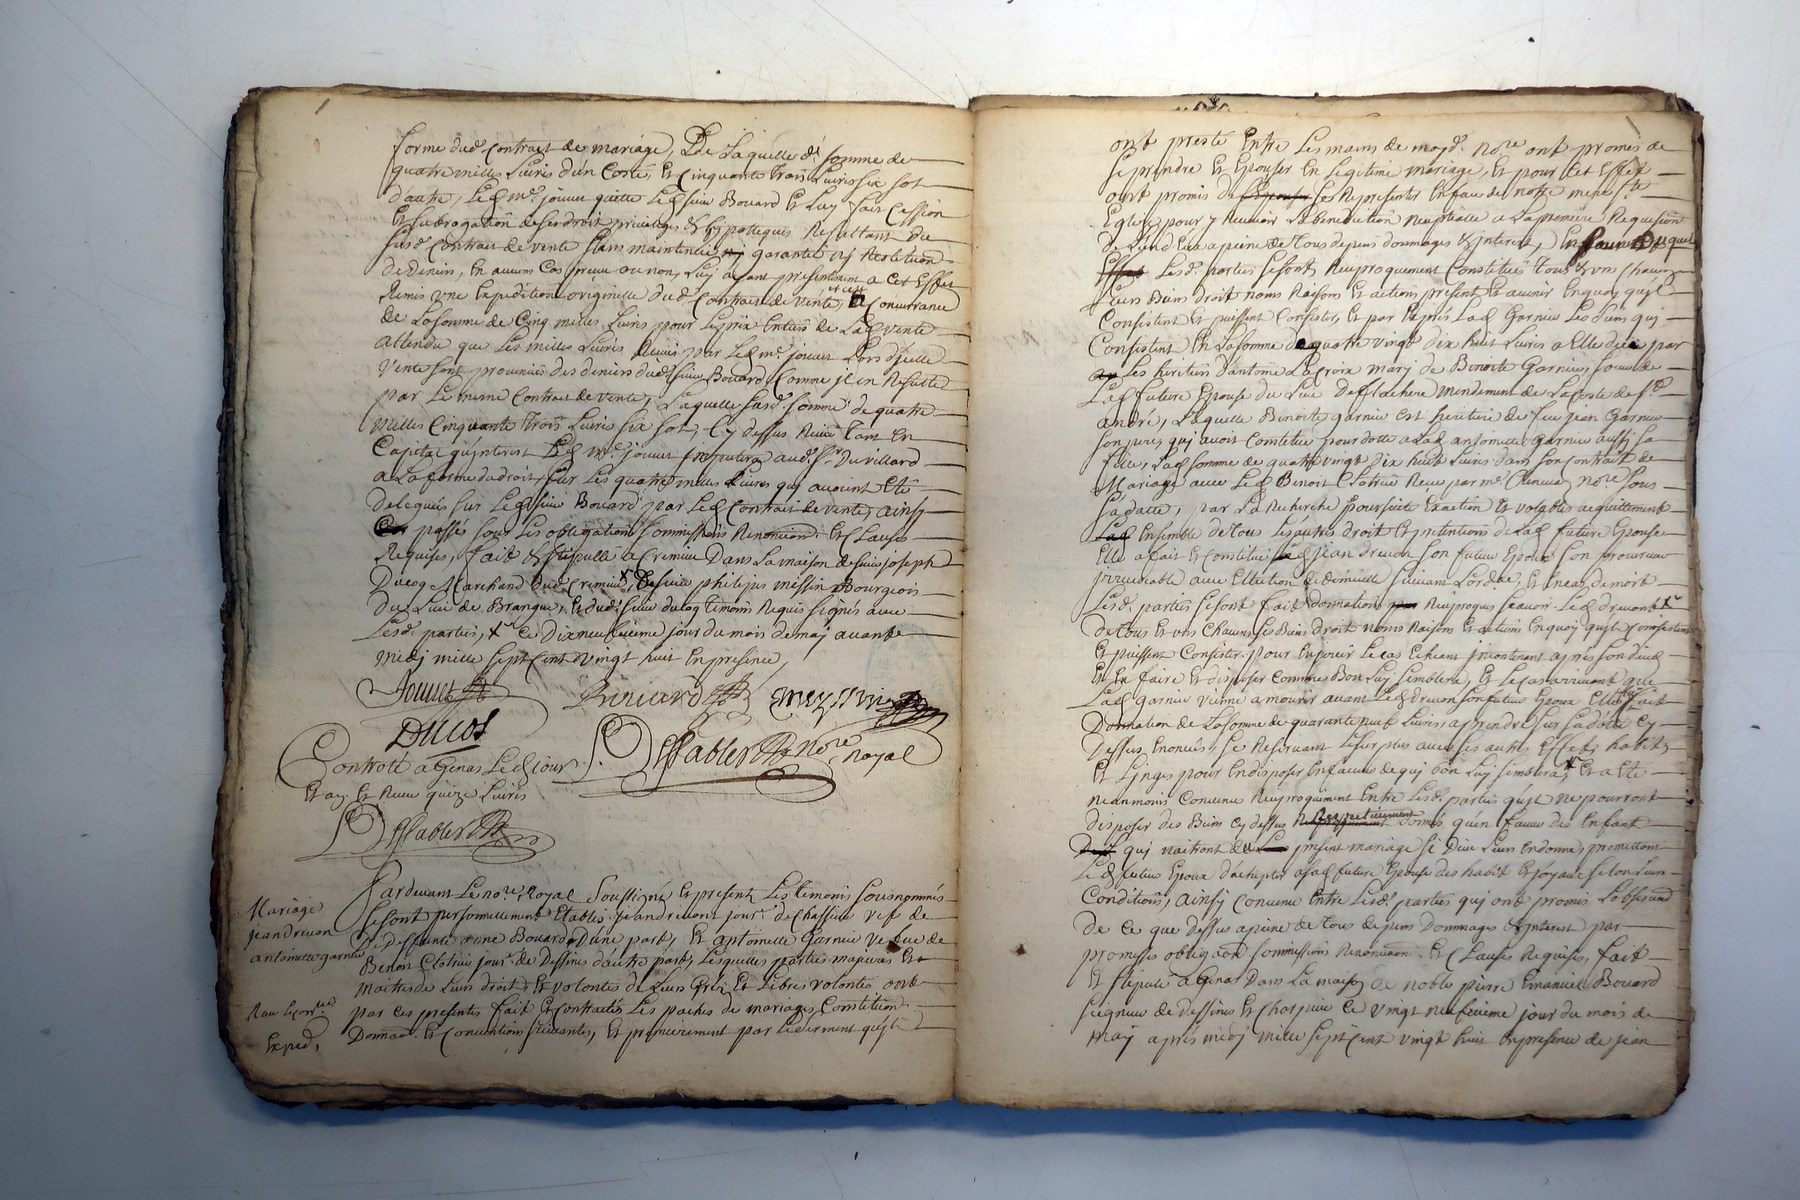 forme dud. Contract de mariage, De laquelle d. somme de
quatre milles Livres d'un Costé, Et Cinquante trois Livres six sol
d'autre, Led. mr. jouuet quitte led. sieur Bouard Et luy fait Cession
Et subrogation de ses droit privileges & hypotteques Resultant du
susd. Contrait de vente sans maintenüe ny garantie ny Restitution
de Deniers, En aucun Cas preueu ou non, Luy ayant presentement a Cet Effet
Remis vne Expedition originelle dud. Contrait de vente, Concurrance
de La somme de Cinq milles Livres pour le prix Entier de Lad. vente
attendu que Les milles Livres Receus par Led. mr. jouuet Lors d'jcelle
vente sont prouenües des deniers dud. sieur Bouard Comme jl en Resulte
par Le mesme Contrait de vente, Laquelle susd. somme de quatre
milles Cinquante Trois Livres six sol, Cy dessus Tant En
Capital qu'interest Led. mr. jouuet jmputera aud. sr. Duvillard
a La forme du droit, sur Les quatre milles Livres qui auoient Eté
deleguées sur Led. sieur Bouard par Led. Contrait de vente, ainsy
passés sous Les obligations soumissions Renonciaôn. Et Clauses
Requises, fait & stipullé a Cremieu Dans La maison de sieur joseph
Ducoq Marchand dud. Cremieu, De sieur philipes Bourgeois
du Lieu de Brangue, Et dud. sieur ducoq temoins Requis signés auec
Lesd. parties, Ce Dixneufuieme jour du mois de may auant
Midj mille sept Cent vingt huit En presence,
Jouuet Bouuard
Ducos
Controlé a Genas Led. jour. Nore. Royal
Et an Et Receu quinze Livres

Mariage
jean dreuon
antoinette garnier
Exped,
Pardeuant Le nore. Royal Soussigné Et present Les temoins sousnommés
se sont personnellement Etablis jean dreuont jour. de Chassieu vef de
Deffunte anne Bouard D'une part, Et antoinette Garnier vefue de
Benoit Clotrier jour. de Dessines d'autre part, Lesquelles partie majeures Et
maitres de Leurs droit Et volontés de Leurs Gréz Et Libres volontés ont
par Ces presentes fait Et Contractés Les paches de mariage, Constitution
Donnaôn. Et Conuentions suiuantes, Et premierement par Le serment qu'jls
ont presté Entre Les mains de moyd. nore ont promis de
se prendre Et Epouser En Legitime mariage, Et pour Cet Effet
ont promis de se Representer En face de notre mere ste
Eglise pour y Receuoir La benediction Nuptialle a La premiere Requisition
de L'un d'Eux a peine de Tous depens dommages & interest, En faueur Duquel
Lesd. parties se sont Reciproquement Constitués Tous & vns Chacuns
Leurs Biens droit noms Raisons Et actions present Et auenir En quoy qu'jls
Consistent Et puissent Consister, Et par Exprés Lad. Garnier Les siens qui
Consistent En La somme de quatre vingt dix huit Livres a Elle düe par
Les heritiers d'antoine La Croix mary de Benoite Garnier, soeur de
Lad. future Epouse du Lieu de mendement de La Coste de st.
andré, Laquelle Benoite garnier est heritiere de feu jean Garnier
son pere, qui avoit Constitué pour dotte a Lad. antoinette garnier aussy sa
fille, Lad. somme de quatre vingt dix huit Livres dans son Contrait de
Mariage auec Led. Benoit Clotrier Receu par mr. nore. sous
sa datte, par La Recherche poursuitte Exaction Et volable acquittement
Ensemble de Tous Les autres droit Et pretentions de Lad. future Epouse
Elle a fait Et Constitué Led. jean dreuon son futeur Epoux son procureur
jrreuocable auec Ellection de domicille suiuant L'ordre, Et En Cas de mort
Lesd. parties se sont fait donnation Reciproque scauoir Led. dreuont
de Tous Et vns Chacuns ses Biens droit noms Raisons Et actions En quoy qu'jls Consistent
Et puissent Consister. pour En jouir Le cas Echeant jncontinent aprés son deces
Et En faire Et disposer Comme Bon Luy semblera, Et Le cas arriuant que
Lad. Garnier vienne a mourir auant Led. dreuon son futeur Epoux Elle Luy fait
Donnation de La somme de quarante neuf Livres, a prendre sur sa dotte Cy
dessus Enoncée, se Reseruant Le surplus auec ses autres Effets habits
Et Linges pour En disposer En faueur de qui bon Luy semblera, Et a Eté
neanmoins Conuenu Reciproquement Entre Lesd. parties qu'jls ne pourront
disposer des Biens Cy dessus Respectiuement donnés qu'en faueur des Enfant
qui naitront du present mariage si Dieu Leurs En donne, promettant
Led. futeur Epoux d'achepter a Lad. future Epouse des habit Et joyaux selon Leurs
Conditions, ainsy Conuenu Entre Lesd. parties qui ont promis L'obseruer
de Ce que Dessus a peine de Tous depens Dommages & Interest par
promesses obligaôn Soumissions Renonciaôn. Et Clauses Requises, fait
Et stipulé a Genas Dans La maison de noble pierre Emanuel Bouard
seigneur de Dessines Et Ce vingt neufuieme jour du mois de
May aprés midj mille sept Cent vingt huit En presence de jean